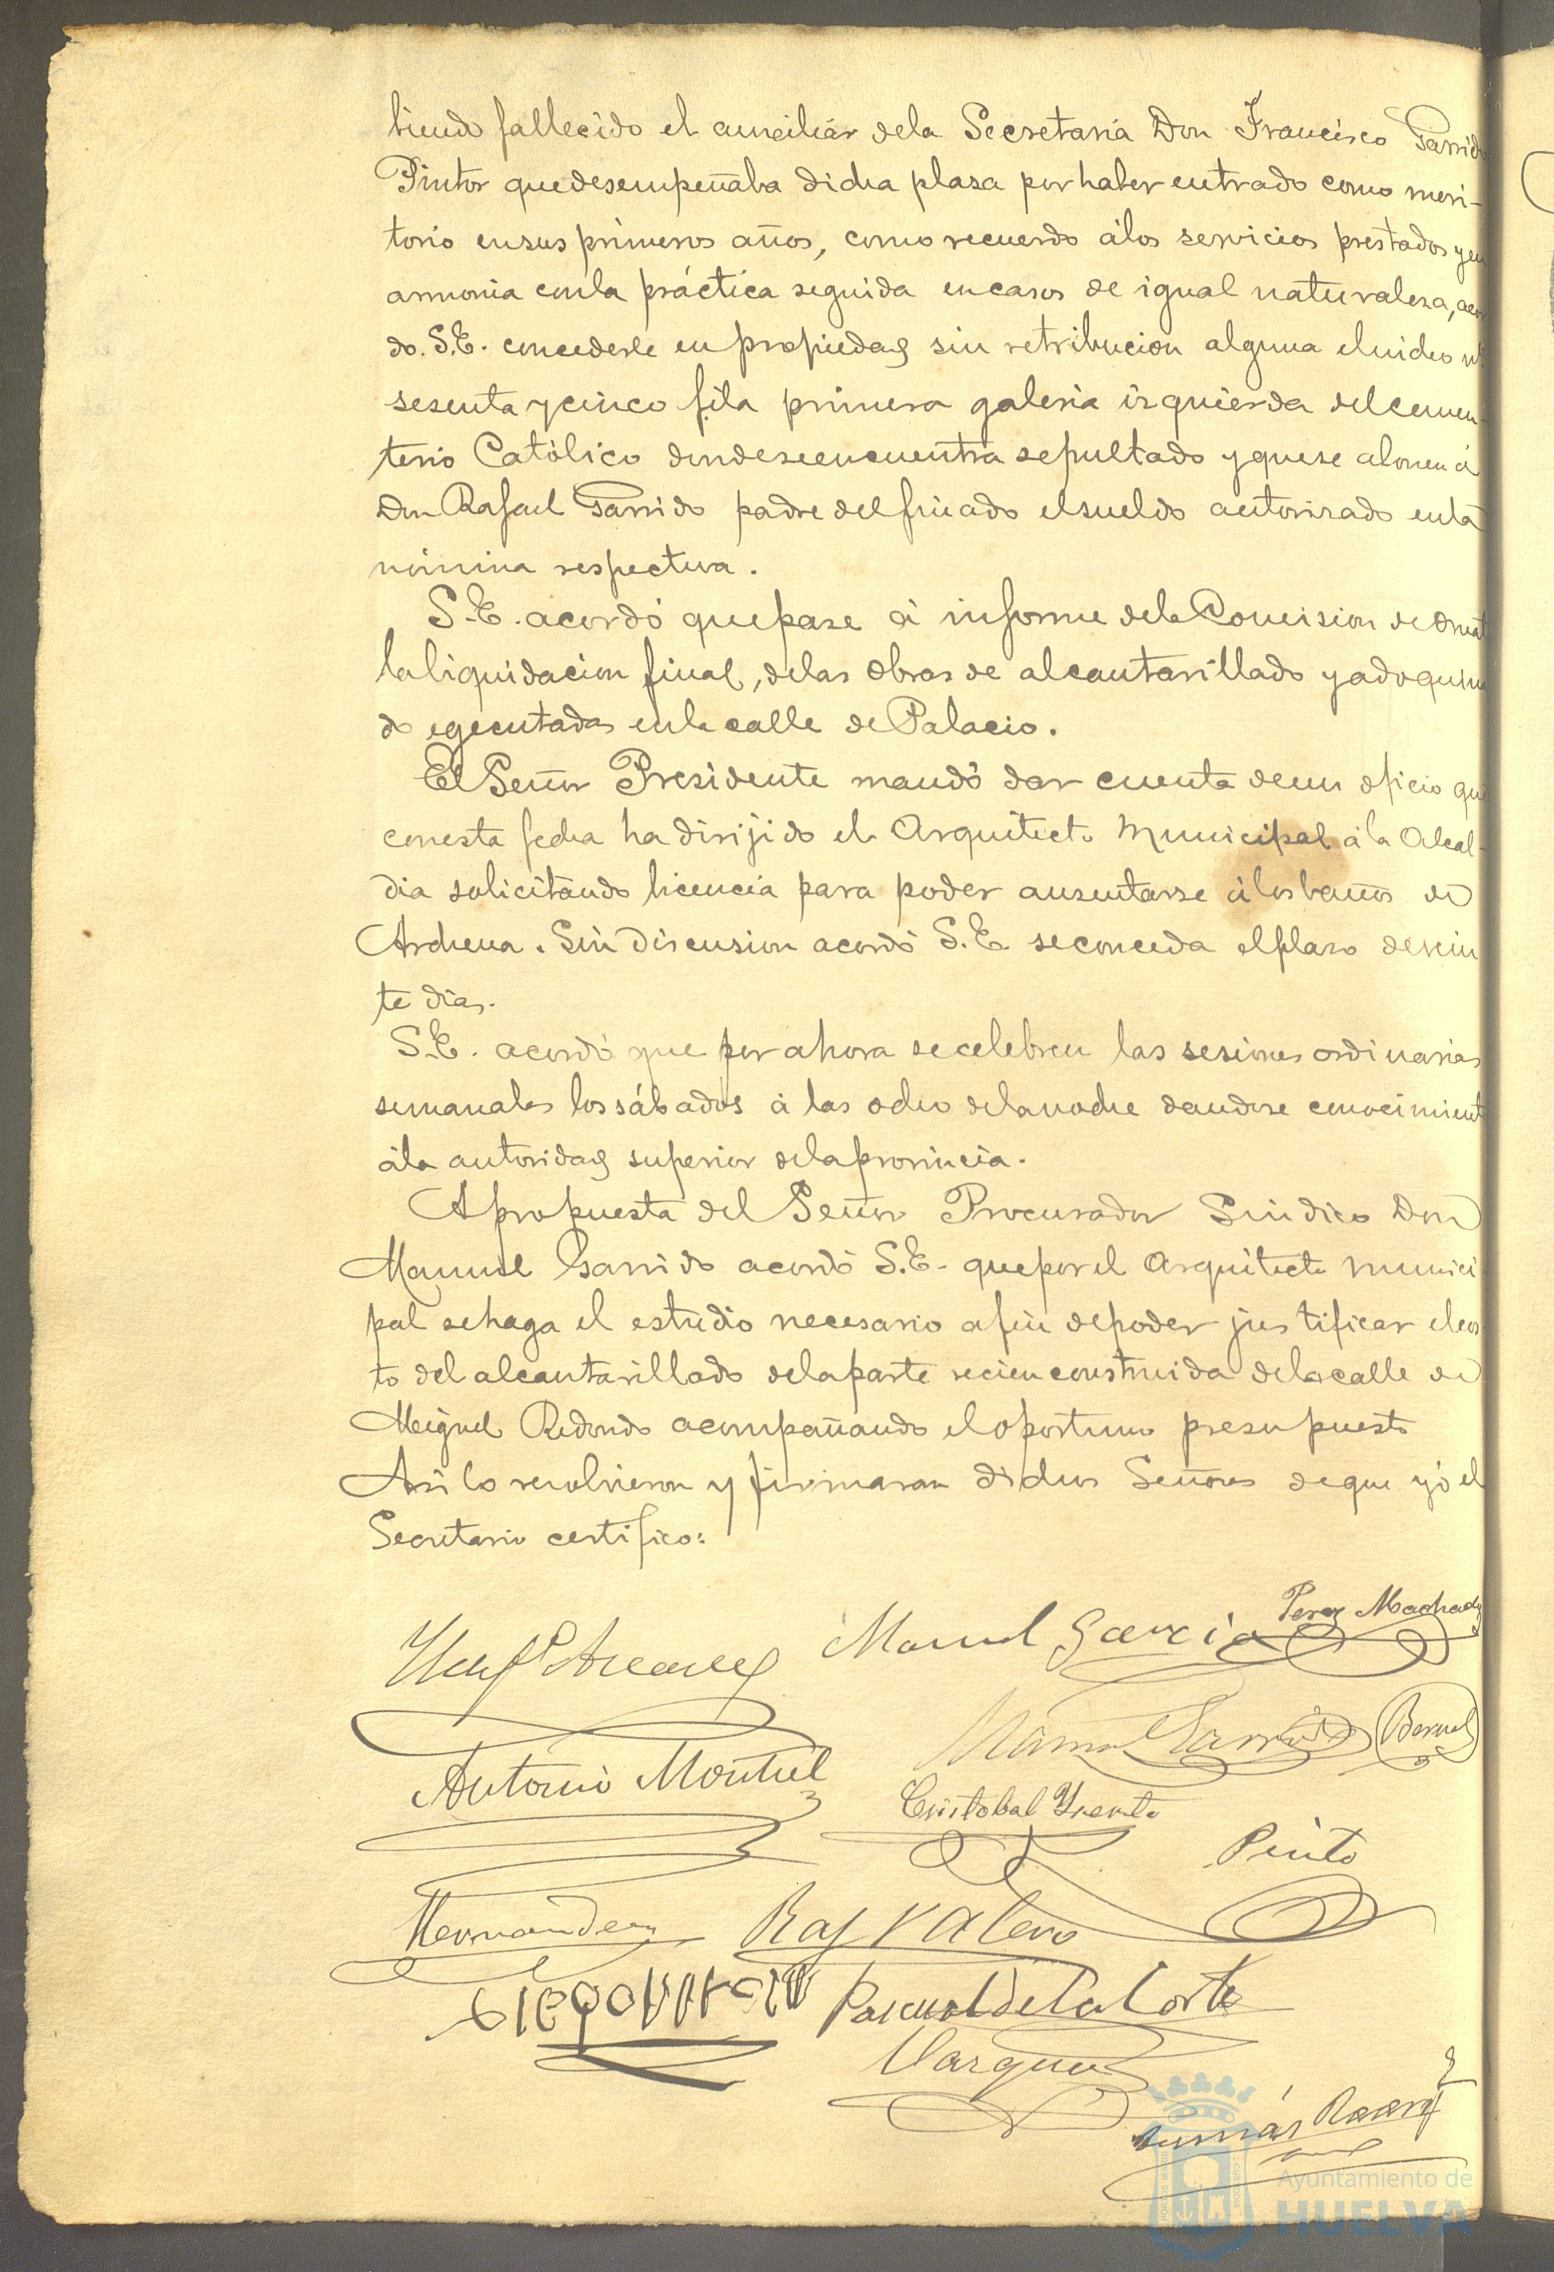 biendo fallecido el aucsiliar dela Secretaria Don Francisco Garrido
Pintor que desempeñaba dicha plasa por haber entrado como meri-
torio en sus primeros años, como recuerdo á los servicios prestados y en
armonia con la práctica seguida en casos de igual naturalesa, acor
do. S.E. concederle en propiedad sin retribucion alguna el nicho nº
sesenta y cinco fila primera galeria isquierda del cemen-
terio Católico donde se encuentra sepultado y que se abonen á
Don Rafael Garrido padre del finado el sueldo autorisado en la
nómina respectiva.
S.E. acordó que pase á informe dela Comision de Ornat
la liquidacion final, delas obras de alcantarillado y adoquina
do egecutadas en la calle de Palacio.
El Señor Presidente mandó dar cuenta de un oficio que
con esta fecha ha dirijido el Arquitecto Municipal á la Alcal-
dia solicitando licencia para poder ausentarse á los baños de
Archena. Sin discusion acordó S.E. se conceda el plaso de vein
te dias.
S.E. acordó que por ahora se celebren las sesiones ordinarias
semanales los sábados á las ocho dela noche dandose conocimient
á la autoridad superior dela provincia.
A propuesta del Señor Procurador Sindico Don
Manuel Garrido acordó S.E. que por el Arquitecto Munici
pal se haga el estudio necesario a fin de poder justificar el cos
to del alcantarillado dela parte recien construida dela calle de
Miguel Redondo acompañando el oportuno presupuesto
Asi lo resolvieron y firmaran dichos Señores de que yó el
Secretario certifico:
Manuel Garcia Perez Machado
Manuel Garrido Bernal
Antonio Montiel
Cristobal
Pinto
Hernandez Raf Valero
Pascual de la Corte
Vazquez
Tomás
Ayuntamiento de
HUELVA